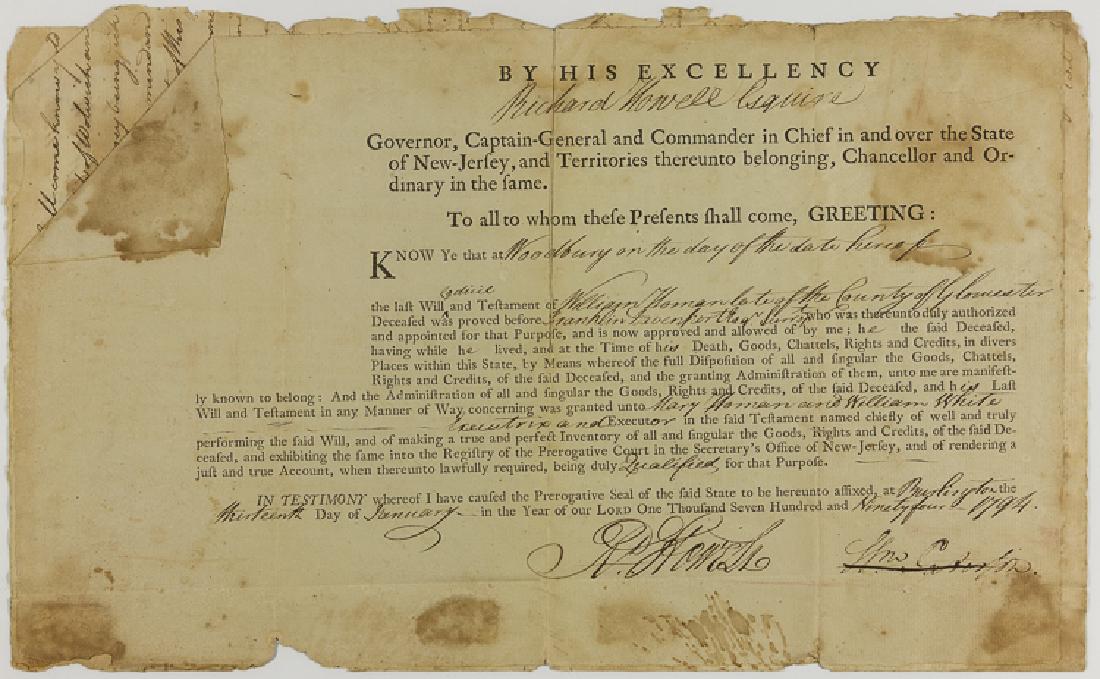 BY HIS EXCELLENCY
Richard Howell Esquire
Governor, Captain-General and Commander in Chief in and over the State
of New-Jersey, and Territories thereunto belonging, Chancellor and Or-
dinary in the same.
To all to whom theſe Preſents ſhall come, GREETING:
KNOW Ye that at Woodbury on the day of the date hereof
Codicil
the laſt Will and Teſtament of William Homan late of the County of Glocester
Deceaſed was proved before Franklin Davenport Esqr who was thereunto duly authorized
and appointed for that Purpoſe, and is now approved and allowed of by me; he the ſaid Deceaſed,
having while he lived, and at the Time of his Death, Goods, Chattels, Rights and Credits, in divers
Places within this State, by Means whereof the full Diſpoſition of all and ſingular the Goods, Chattels,
Rights and Credits, of the ſaid Deceaſed, and the granting Adminiſtration of them, unto me are manifeſt-
ly known to belong: And the Adminiſtration of all and ſingular the Goods, Rights and Credits, of the ſaid Deceaſed, and his Laſt
Will and Teſtament in any Manner of Way concerning was granted unto Mary Homan and William White
Executrix and Executor in the ſaid Teſtament named chiefly of well and truly
performing the ſaid Will, and of making a true and perfect Inventory of all and ſingular the Goods, Rights and Credits, of the ſaid De-
ceaſed, and exhibiting the ſame into the Regiſtry of the Prerogative Court in the Secretary's Office of New-Jerſey, and of rendering a
juſt and true Account, when thereunto lawfully required, being duly Qualified, for that Purpoſe.
IN TESTIMONY whereof I have cauſed the Prerogative Seal of the ſaid State to be hereunto affixed, at Burlington the
thirteenth Day of January in the Year of our LORD One Thouſand Seven Hundred and Ninety four 1794.
Rd Howell